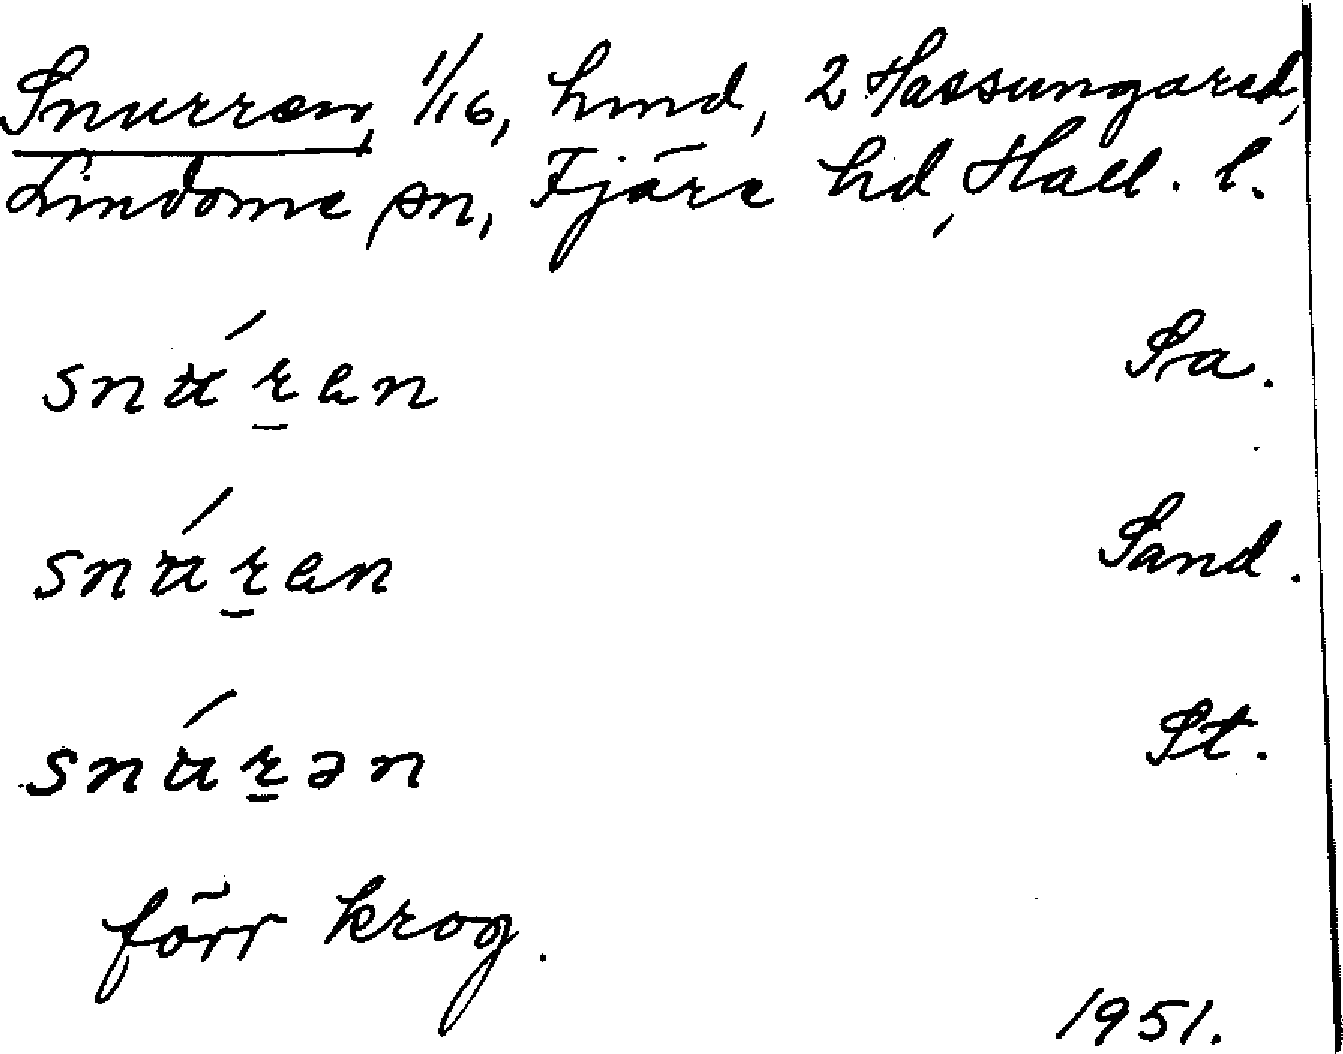 Snurran, 1/16, hmd, 2 Hassungared,
Lindome sn, Fjäre hd, Hall. l.
snú̵ran Sa.
snú̵ran Sand.
snú̵rən St.
förr krog.
1951.